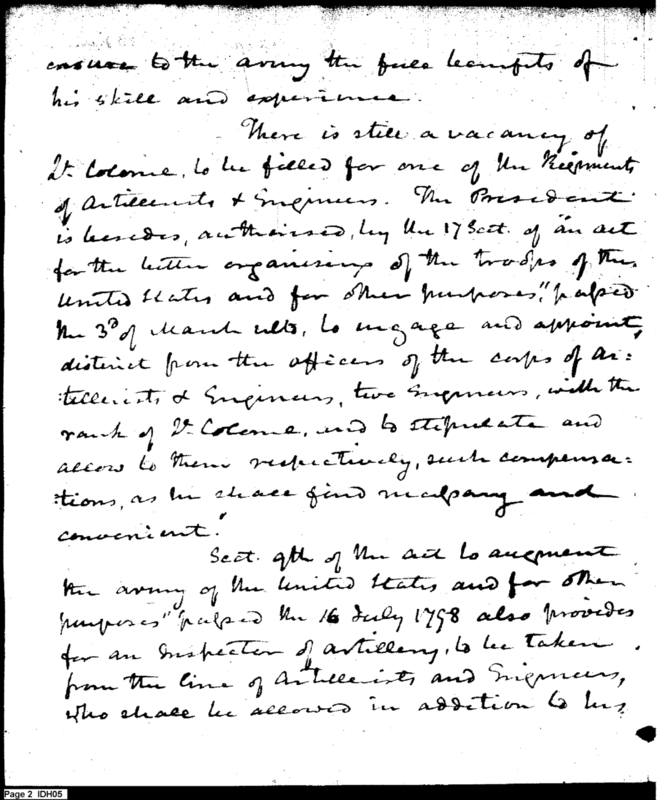 ensure to the army the full benefits of
his skill and experience.
There is still a vacancy of
Lt. Colonel, to be filled for one of the Regiments
of Artillerists & Engineers. The President
is besides, authorised, by the 17 Sect. of "an act
for the better organising of the troops of the
United States and for other purposes," passed
the 3d of March ulto, to engage and appoint,
distinct from the officers of the corps of Ar=
=tillerists & Engineers, two Engineers, with the
rank of Lt. Colonel, and to stipulate and
allow to them respectively, such compensa=
=tions, as he shall find necessary and
convenient."
Sect. 9th of the act to augment
the army of the United States and for other
purposes" passed the 16 July 1798 also provides
for an Inspector of artillery, to be taken
from the line of Artillerists and Engineers,
who shall be allowed in addition to his
Page 2 IDH05